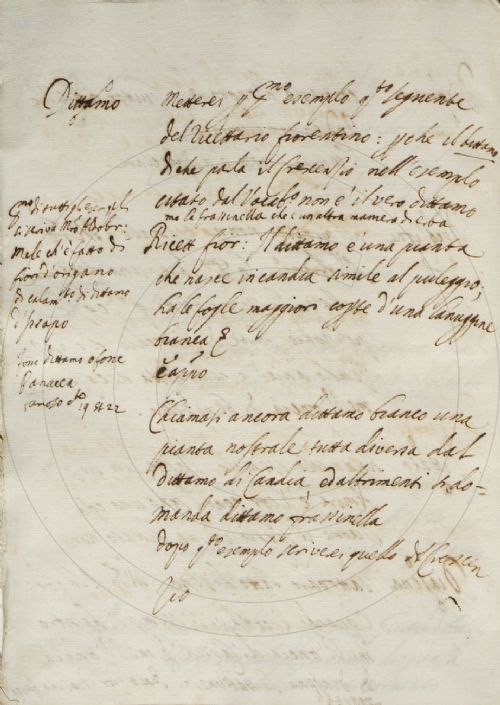 Dittamo
Metterei p p.mo esempio q.to seguente
del Ricettario fiorentino: p che il dittamo
di che parla il Crescenzio nell esempio
citato dal Vocab.o non è il vero dittamo
ma la frassinella che è un altra maniera di erba
Ricett fior: Il dittamo è una pianta
che nasce in candia simile al puleggio,
ha le foglie maggiori coperte d'una lanuggine
bianca &
E appo
Chiamasi ancora dittamo bianco una
pianta nostrale tutta diversa dal
dittamo di Candia, ed altrimenti si do-
manda dittamo frassinella
dopo q.to esempio scriverei quello del Crescen
zio
p.mo di tutti gli esempli
si scriva
Mele ch'è fatto di
fiori d'origano
di calam.to di dittamo
d'isopo
dittamo o sone
Panacea
19 82 22